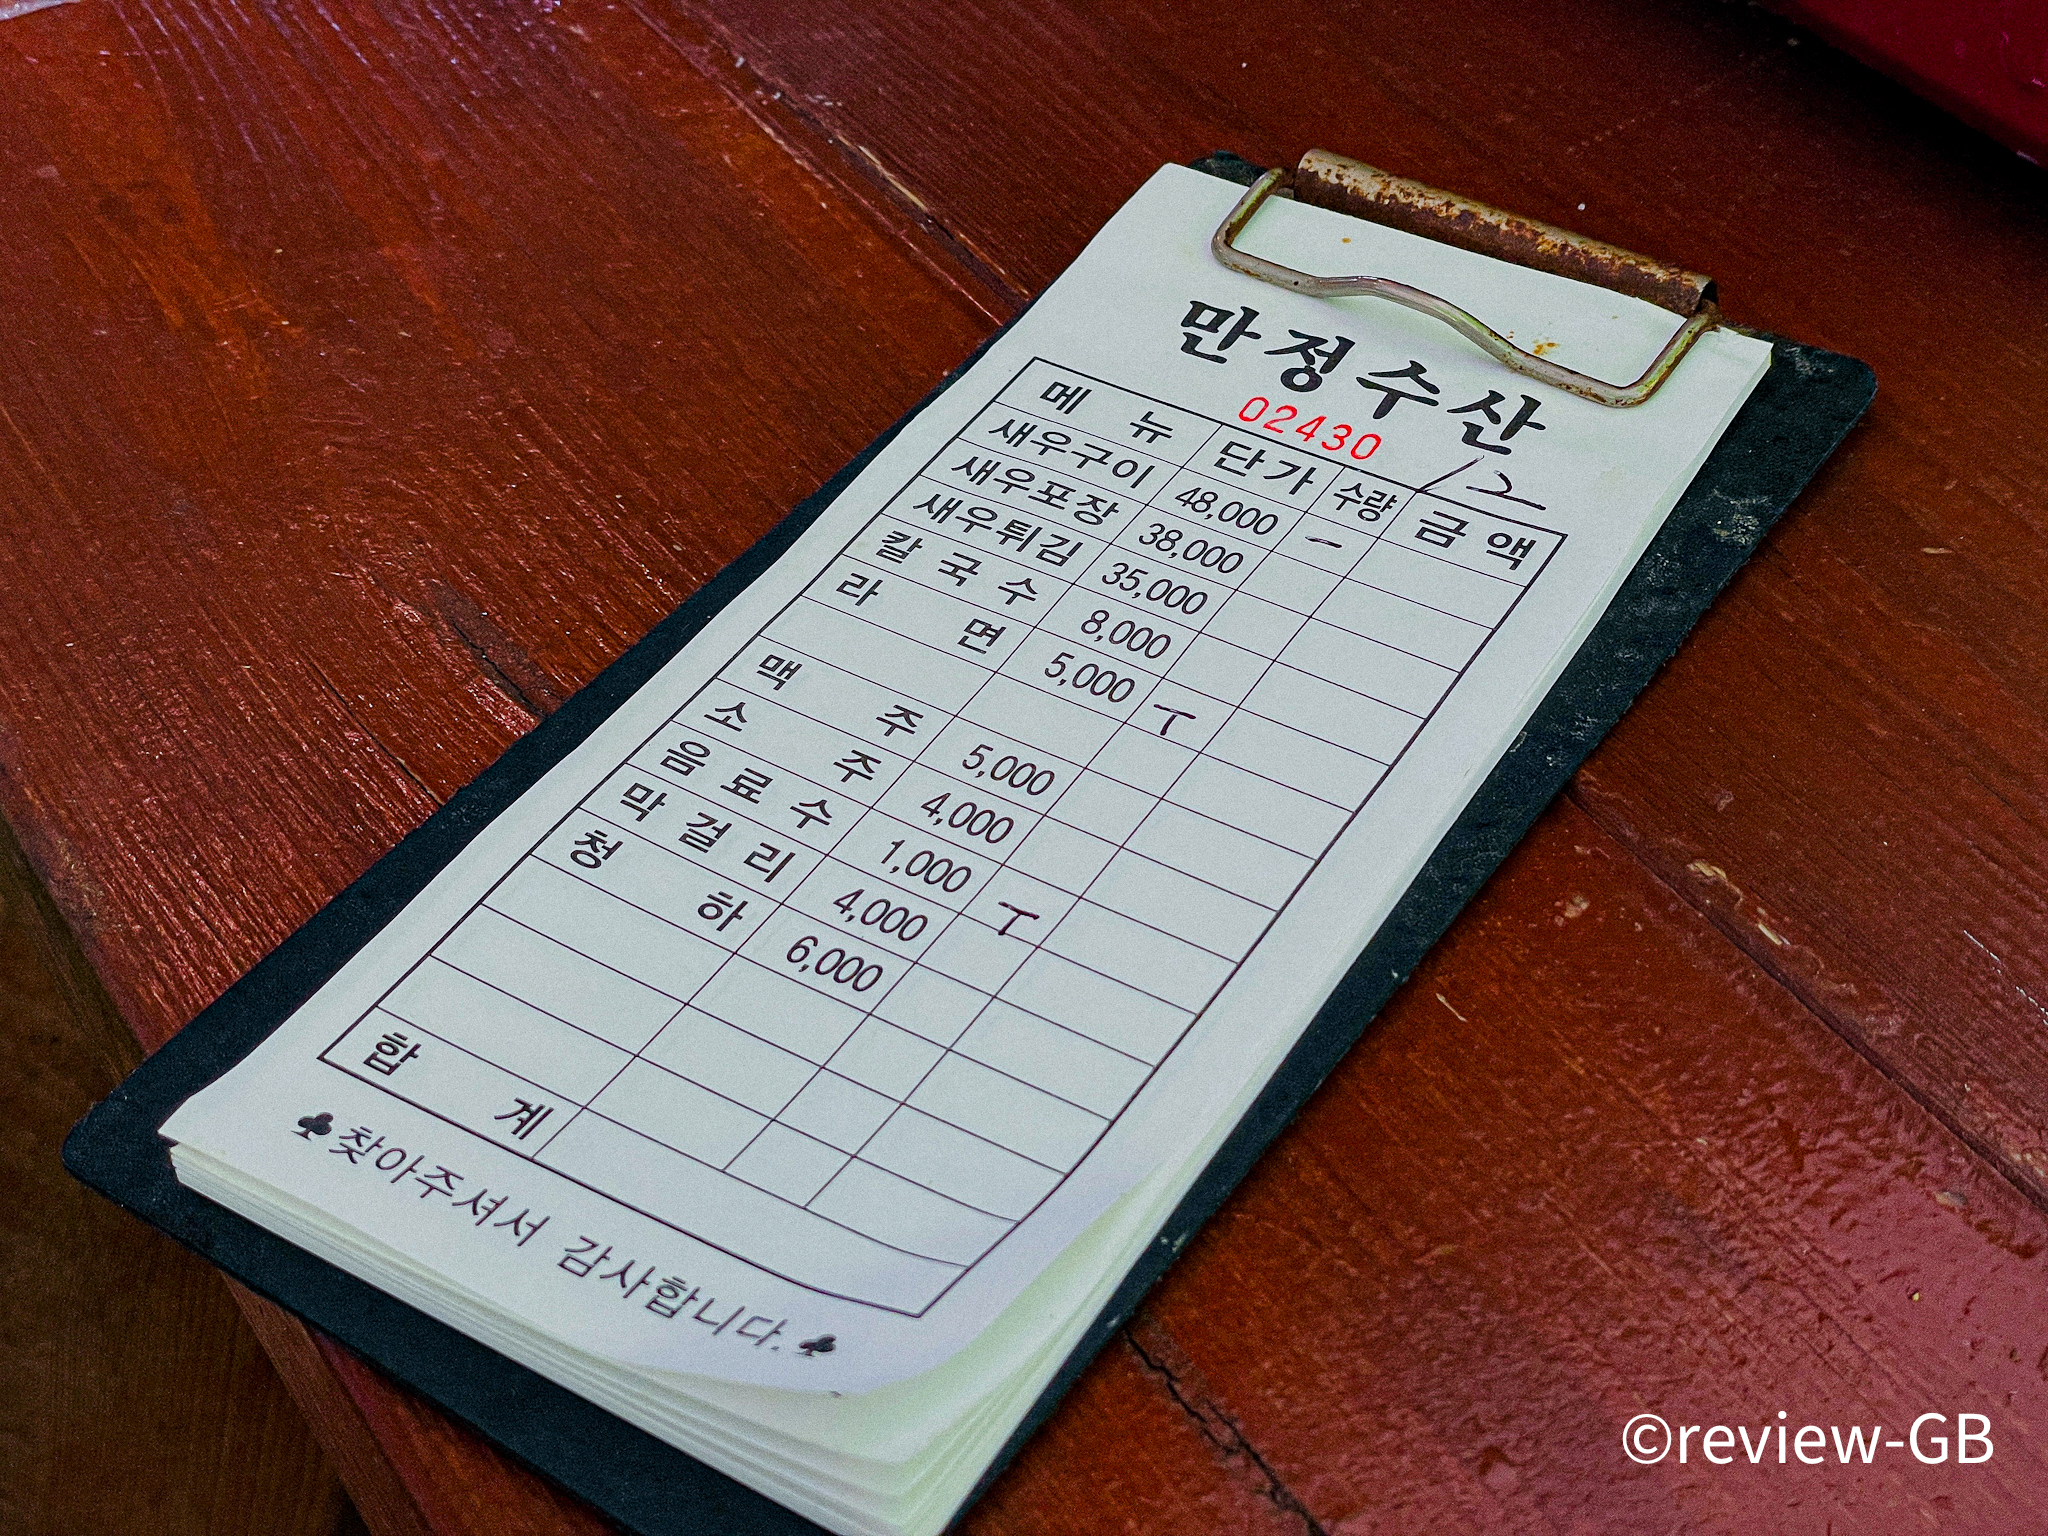 만정수산
02430
12
메뉴 단가 수량 금액
새우구이 48,000 -
새우포장 38,000
새우튀김 35,000
칼국수 8,000
라면 5,000 T
맥주 5,000
소주 4,000
음료수 1,000 T
막걸리 4,000
청하 6,000
합계
♣찾아주셔서 감사합니다.♣
©review-GB